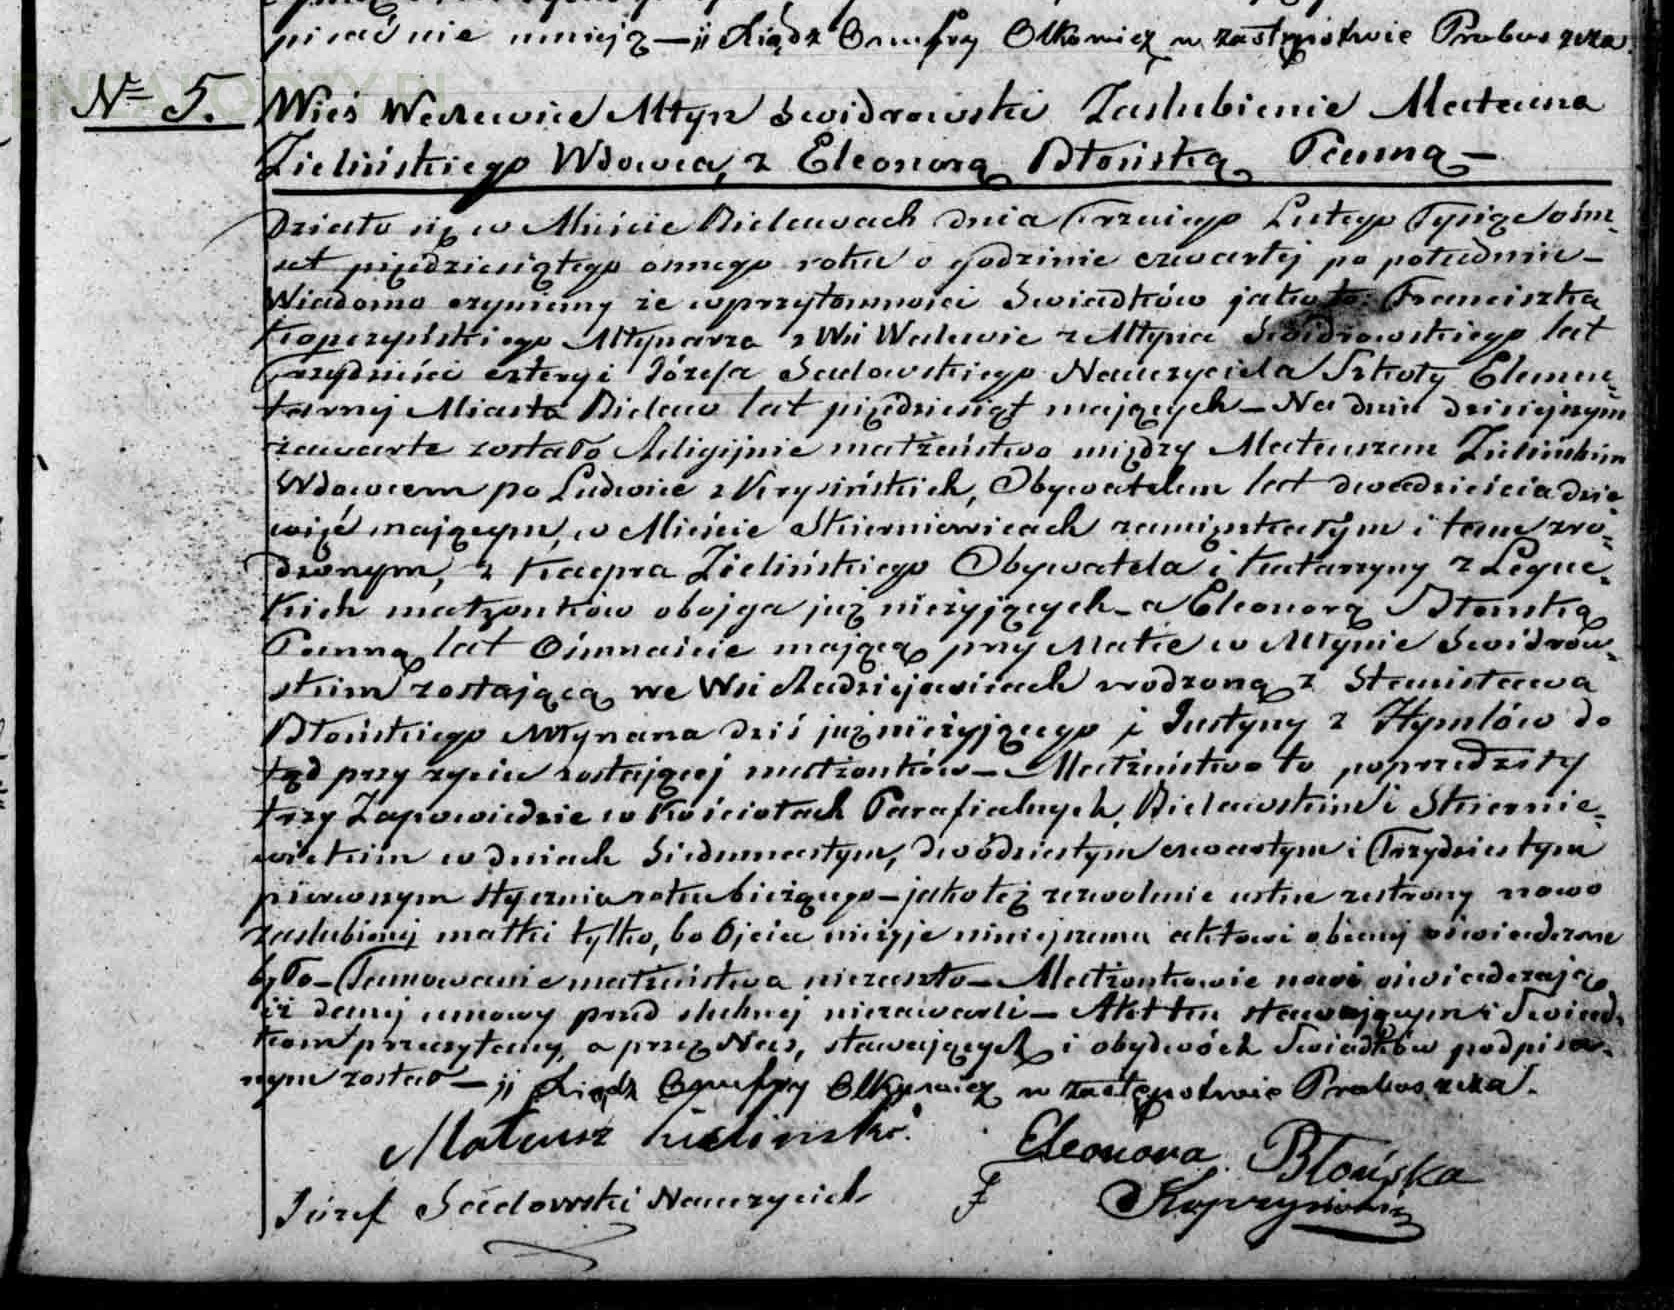 pisać nie umieją — ij Xiądz Onufry Olkowicz w zastępstwie Proboszcza
Nº 5. Wieś Walewice Młyn Swidrowski Zaslubienie Mateusza
Zielińskiego Wdowca, z Eleonorą Błońską Panną —
Działo się w Mieście Bielawach dnia Trzeciego Lutego Tysiąc ośm=
set pięćdziesiątego osmego roku o godzinie czwartej po południu —
Wiadomo czyniemy że w przytomności Swiadków jako to: Franciszka
Kopczyńskiego Młynarza z Wsi Walewic z Młyna Swidrowskiego lat
Trzydzieści cztery i Józefa Sadowskiego Nauczyciela Szkoły Elemen=
tarnej Miasta Bielaw lat pięćdziesiąt mających — Na dniu dzisiejszym
zawarte zostało Religijnie małżeństwo między Mateuszem Zielińskim
Wdowcem po Ludwice z Krysińskich, Obywatelem lat dwadzieścia dzie=
więć mającym, w Mieście Skierniewicach zamięszkałym i tamże zro=
dzonym, z Kacpra Zielińskiego Obywatela i Katarzyny z
kich małżonków obojga już nieżyjących — a Eleonorą Błońską
Panną lat Ośmnaście mającą przy Matce w Młynie Swidrow=
skim zostającą we Wsi Radziejowicach urodzoną z Stanisława
Błońskiego Młynarza dziś już nieżyjącego i Justyny z do
tąd przy życiu zostającej małżonków — Małżeństwo to poprzedziły
trzy Zapowiedzie w Kościołach Parafialnych, Bielawskim i Skiernie=
wickim w dniach Siedmnastym, dwódziestym czwartym i Trzydziestym
pierwszym stycznia roku bieżącego — jako też zezwolenie ustne ze strony nowo
zaslubionej matki tylko, bo Ojciec nieżyje niniejszemu aktowi obecnej oświadczone
było — Tamowanie małżeństwa niezaszło — Małżonkowie nowi oświadczają
iż żadnej umowy przed slubnej niezawarli — Akt ten stawającym i Swiad=
kom przeczytany, a przez Nas, stawających i obydwóch Swiadków podpisa=
nym został — ij Xiądz Onufry Olkowicz w zastępstwie Proboszcza.
Mateusz Zielinski. Eleonora Błońska
Józef Sadowski Nauczyciel F Kopczyński